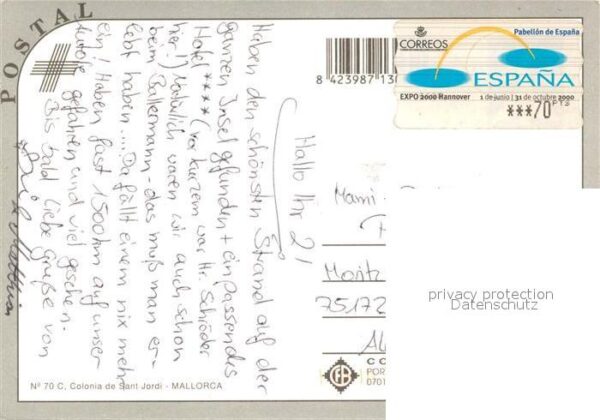 POSTAL
CORREOS
Pabellón de España
ESPAÑA
EXPO 2000 Hannover 1 de junio | 31 de octubre 2000
***70 PTS
8 423987 130
Hallo Ihr 2!
Haben den schönsten Strand auf der
ganzen Insel gefunden + ein passendes
Hotel **** (vor kurzem war Hr. Schröder
hier!) Natürlich waren wir auch schon
beim Ballermann - das muß man er-
lebt haben ... Da fällt einem nix mehr
ein! Haben fast 1500 km auf unser
Autole gefahren und viel gesehen.
Bis bald liebe Grüße von
Mami -
Moritz
75172
Nº 70 C, Colonia de Sant Jordi - MALLORCA
POR
0701
privacy protection
Datenschutz